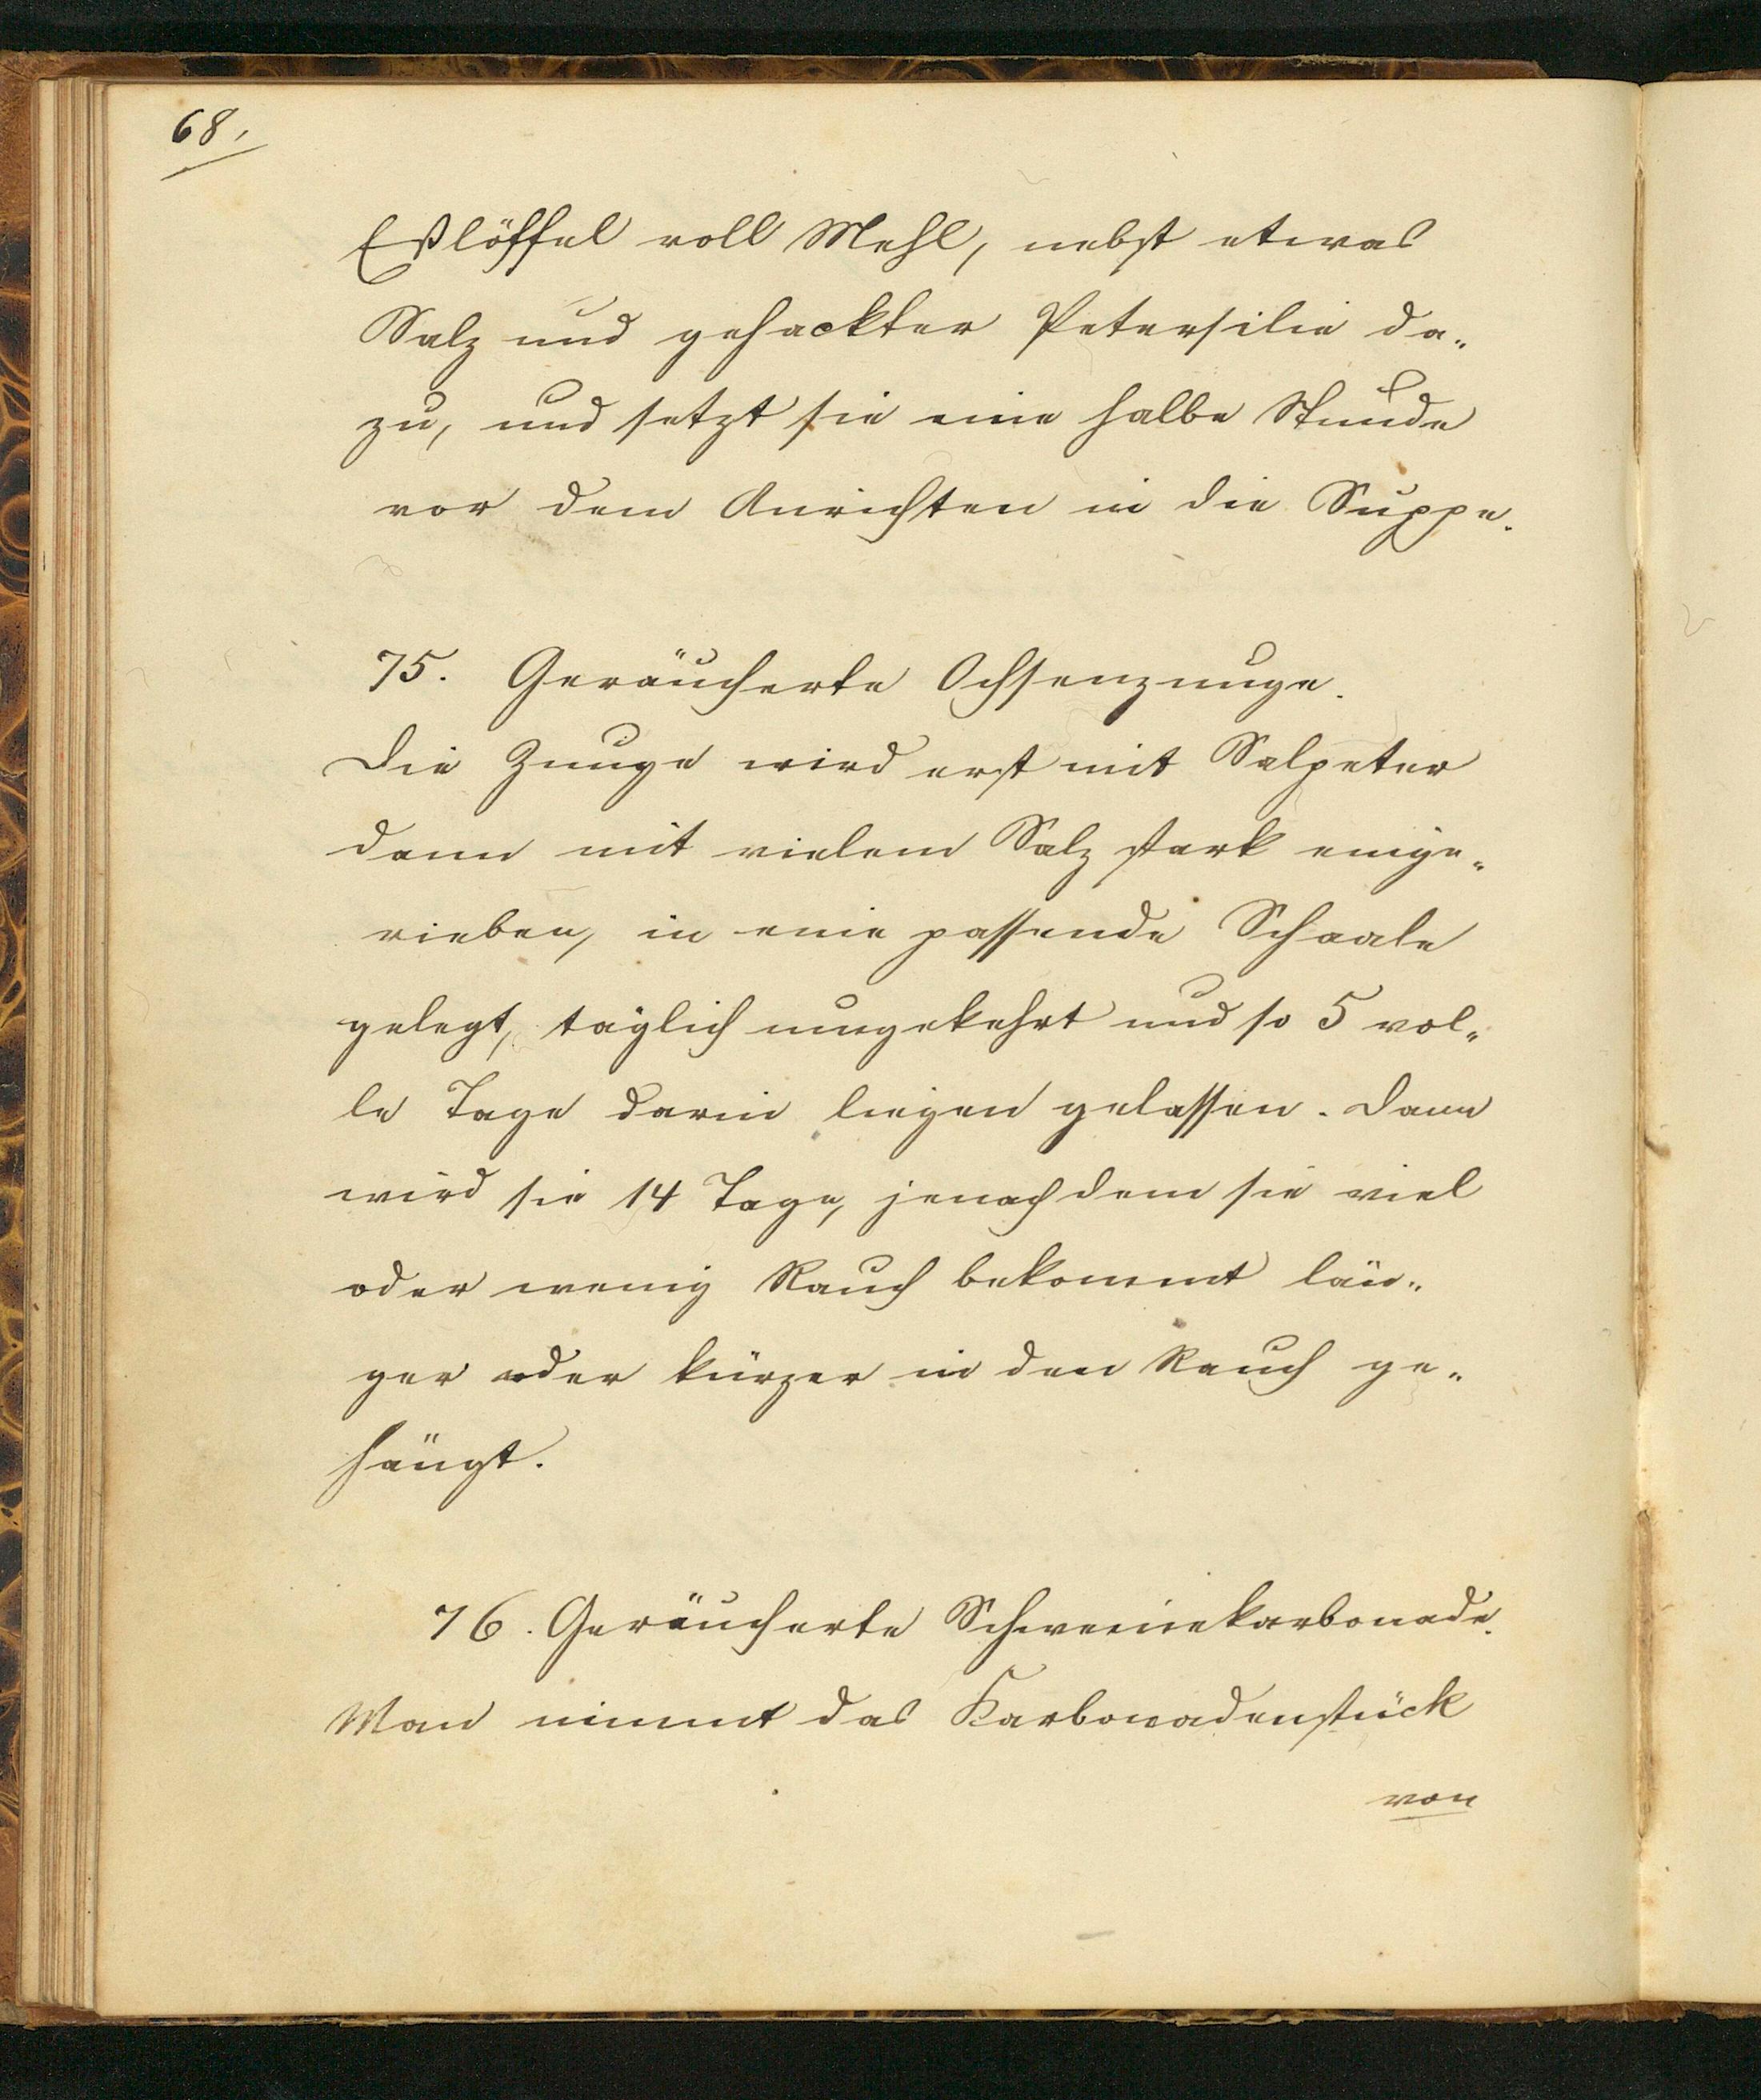 68.
Eßlöffel voll Mehl, nebst etwas
Salz und gehackter Petersilie da„
zu, und setzt sie eine halbe Stunde
vor dem Anrichten in die Suppe.
75. Geräucherte Ochsenzunge.
Die Zunge wird erst mit Salpeter
dann mit vielem Salz stark einge„
rieben, in eine passende Schaale
gelegt, täglich umgekehrt und so 5 vol„
le Tage darin liegen gelassen. Dann
wird sie 14 Tage, jenachdem sie viel
oder wenig Rauch bekommt län„
ger oder kürzer in den Rauch ge„
hängt.
76. Geräucherte Schweinekarbonade.
Man nimmt das Karbonadenstück
von